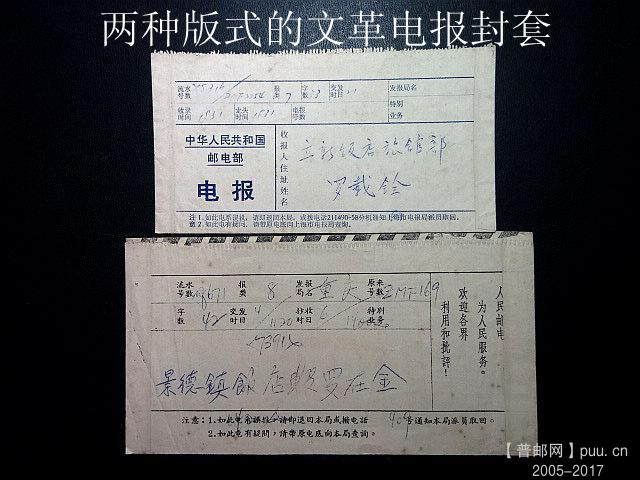 两种版式的文革电报封套
流水号数 报类 7 字数 交发时日 发报局名
收录时间 1531 业头时间 1531 电报号数 特别业务
中华人民共和国
邮电部
电报
收报人住址姓名
立新饭店旅馆部
罗载铨
注 1.如此电系误投,请即退回本局,或拨电话211490-58分机通知上海市电报局派员取回。
意 2.如此电有疑问,请带原电底向上海市电报局查询。
流水号数 报类 8 发报局名 重庆 原来号数
字数 42 交发时日 4/1120 抄收时日 6 特别业务
人民邮电
为人民服务。
欢迎各界
利用和批评!
景德镇飯店
注意:1.如此電系誤投,請即退回本局或撥電話 号通知本局派員取回。
2.如此電有疑問,請帶原电底向本局查詢。
【普邮网】puu.cn
2005-2017